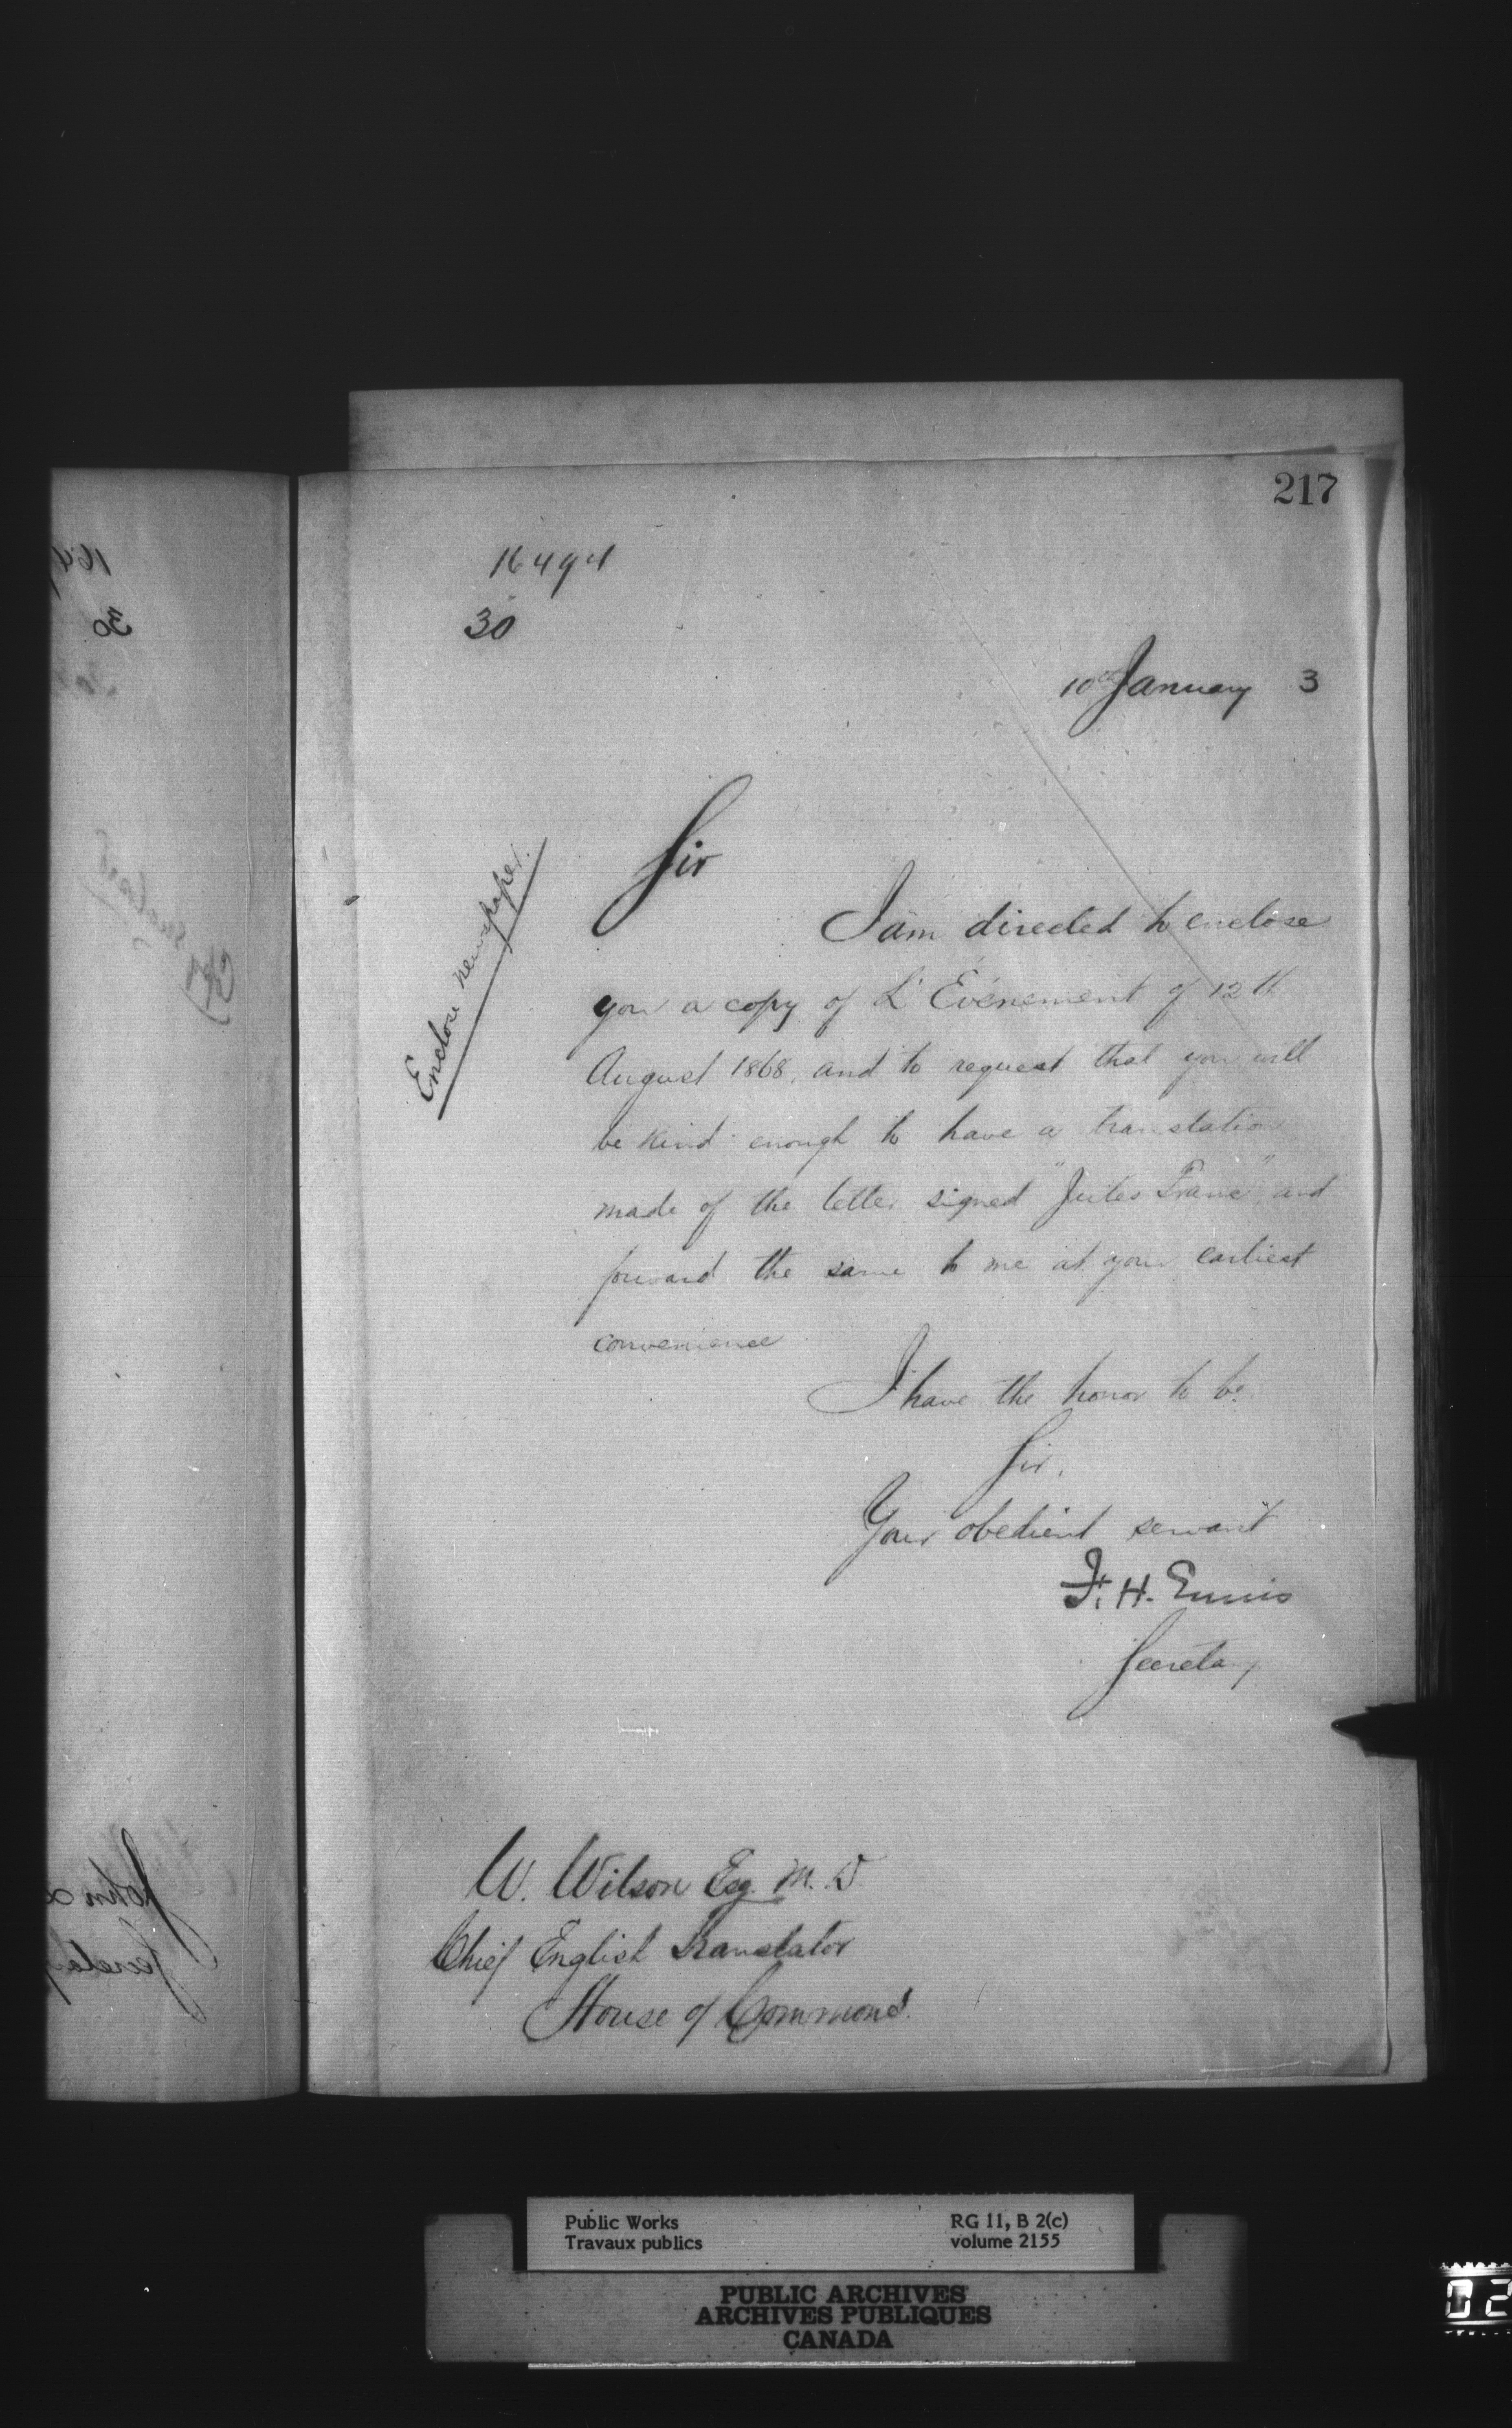 217
16494
30
10th January 3
Enclose newspaper.
Sir
I am directed to enclose
you a copy of L'Evénement of 12th
August 1868, and to request that you will
be kind enough to have a translation
made of the letter signed "Jules " and
forward the same to me at your earliest
convenience
I have the honor to be.
Sir,
Your obedient servant
F. H. Ennis
Secretary
W. Wilson Esq. M. D
Chief English Translator
House of Commons.
Public Works
Travaux publics
RG 11, B 2(c)
volume 2155
PUBLIC ARCHIVES
ARCHIVES PUBLIQUES
CANADA
02